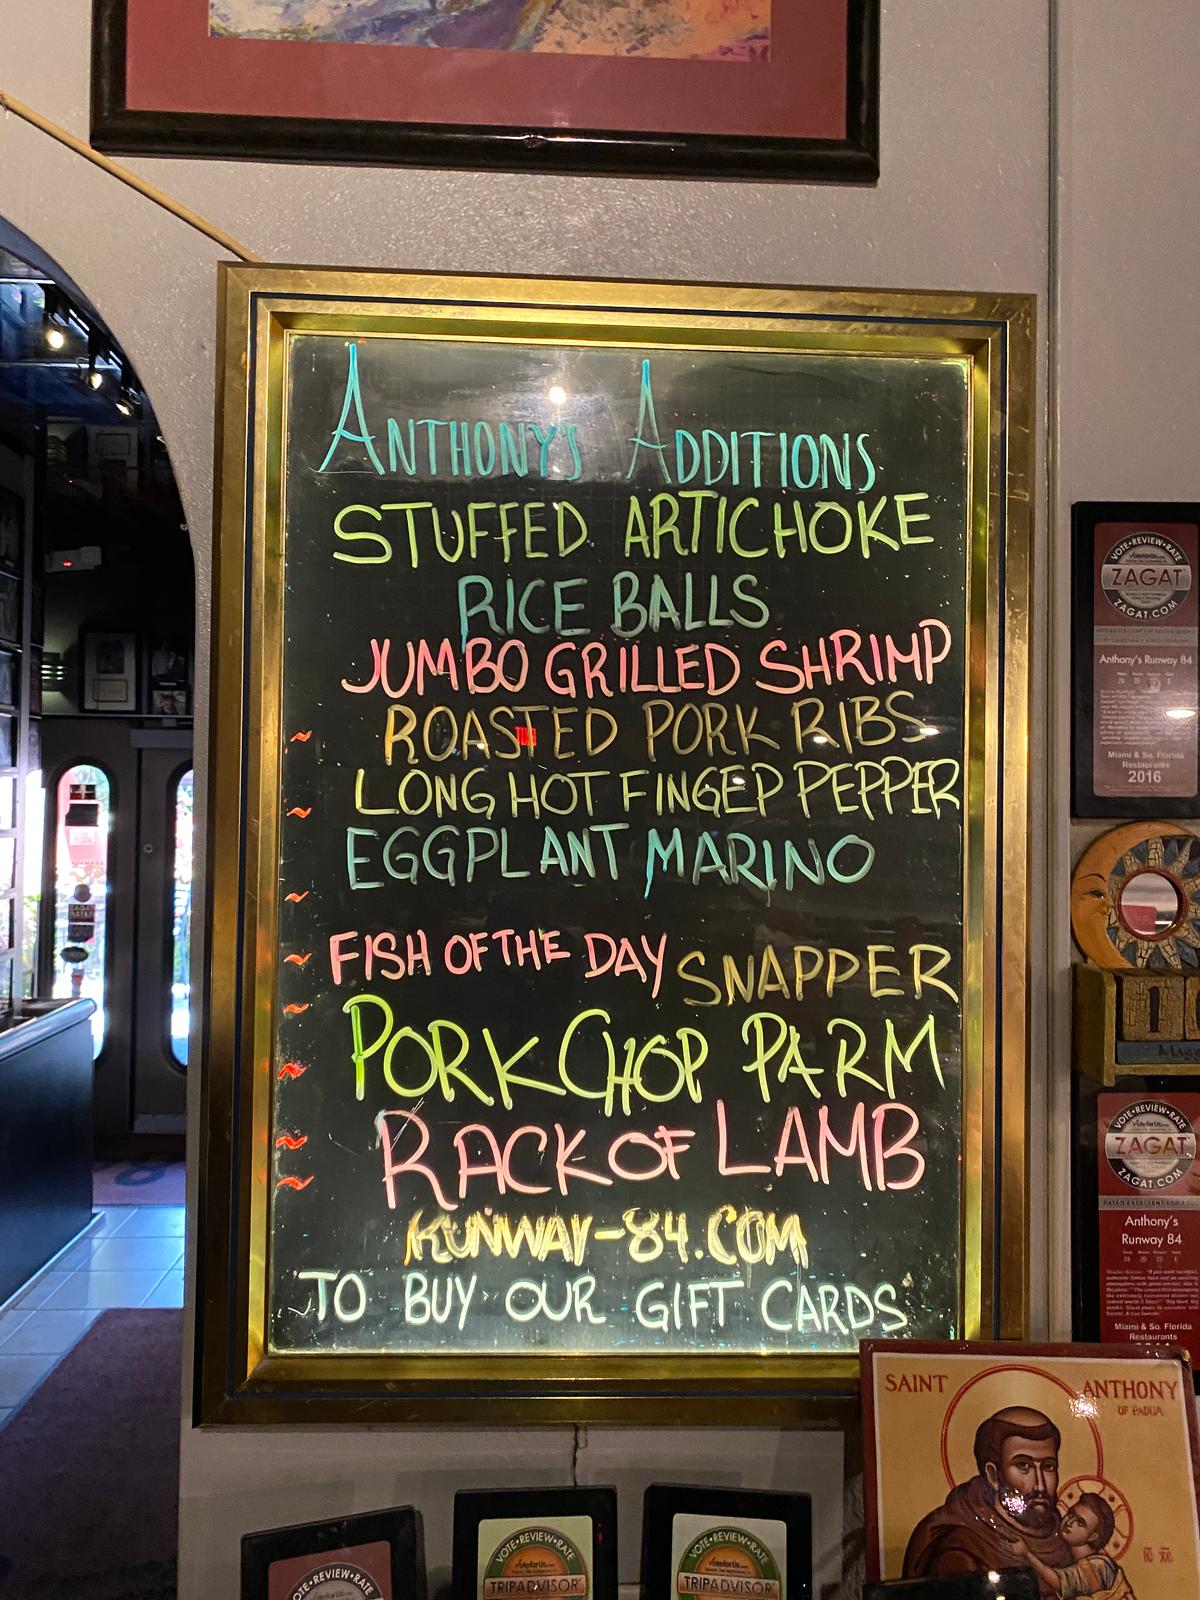 ANTHONY'S ADDITIONS
STUFFED ARTICHOKE
RICE BALLS
JUMBO GRILLED SHRIMP
ROASTED PORK RIBS
LONG HOT FINGER PEPPER
EGGPLANT MARINO
FISH OF THE DAY SNAPPER
PORK CHOP PARM
RACK OF LAMB
RUNWAY-84.COM
TO BUY OUR GIFT CARDS
VOTE•REVIEW•RATE
ZAGAT
ZAGAT.COM
Anthony's Runway 84
Miami & So. Florida
Restaurants
2016
1
VOTE•REVIEW•RATE
ZAGAT
ZAGAT.COM
Anthony's
Runway 84
Miami & So. Florida
Restaurants
SAINT ANTHONY
OF PADUA
VOTE•REVIEW•RATE
VOTE•REVIEW•RATE
TRIPADVISOR
VOTE•REVIEW•RATE
TRIPADVISOR